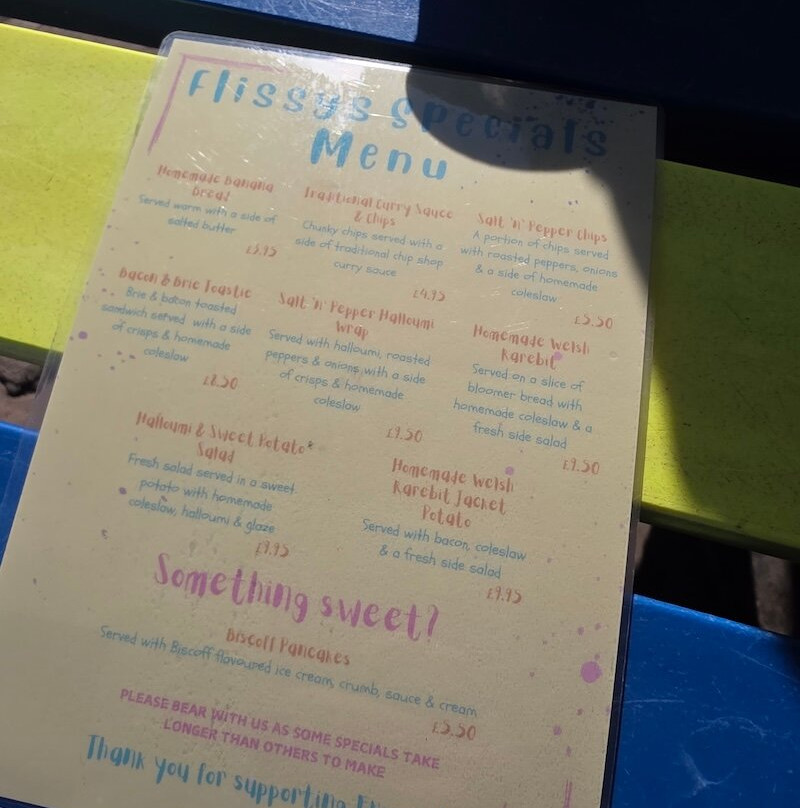 Flissys Specials
Menu
Homemade Banana
Bread
Served warm with a side of
salted butter
£3.95
Traditional Curry Sauce
& Chips
Chunky chips served with a
side of traditional chip shop
curry sauce
£4.95
Salt 'n' Pepper Chips
A portion of chips served
with roasted peppers, onions
& a side of homemade
coleslaw
£5.50
Bacon & Brie Toastie
Brie & bacon toasted
sandwich served with a side
of crisps & homemade
coleslaw
£8.50
Salt 'n' Pepper Halloumi
Wrap
Served with halloumi, roasted
peppers & onions with a side
of crisps & homemade
coleslaw
£9.50
Homemade Welsh
Rarebit
Served on a slice of
bloomer bread with
homemade coleslaw & a
fresh side salad
£9.50
Halloumi & Sweet Potato*
Salad
Fresh salad served in a sweet
potato with homemade
coleslaw, halloumi & glaze
£9.95
Homemade Welsh
Rarebit Jacket
Potato
Served with bacon, coleslaw
& a fresh side salad
£9.95
Something sweet?
Biscoff Pancakes
Served with Biscoff flavoured ice cream, crumb, sauce & cream
£5.50
PLEASE BEAR WITH US AS SOME SPECIALS TAKE
LONGER THAN OTHERS TO MAKE
Thank you for supporting